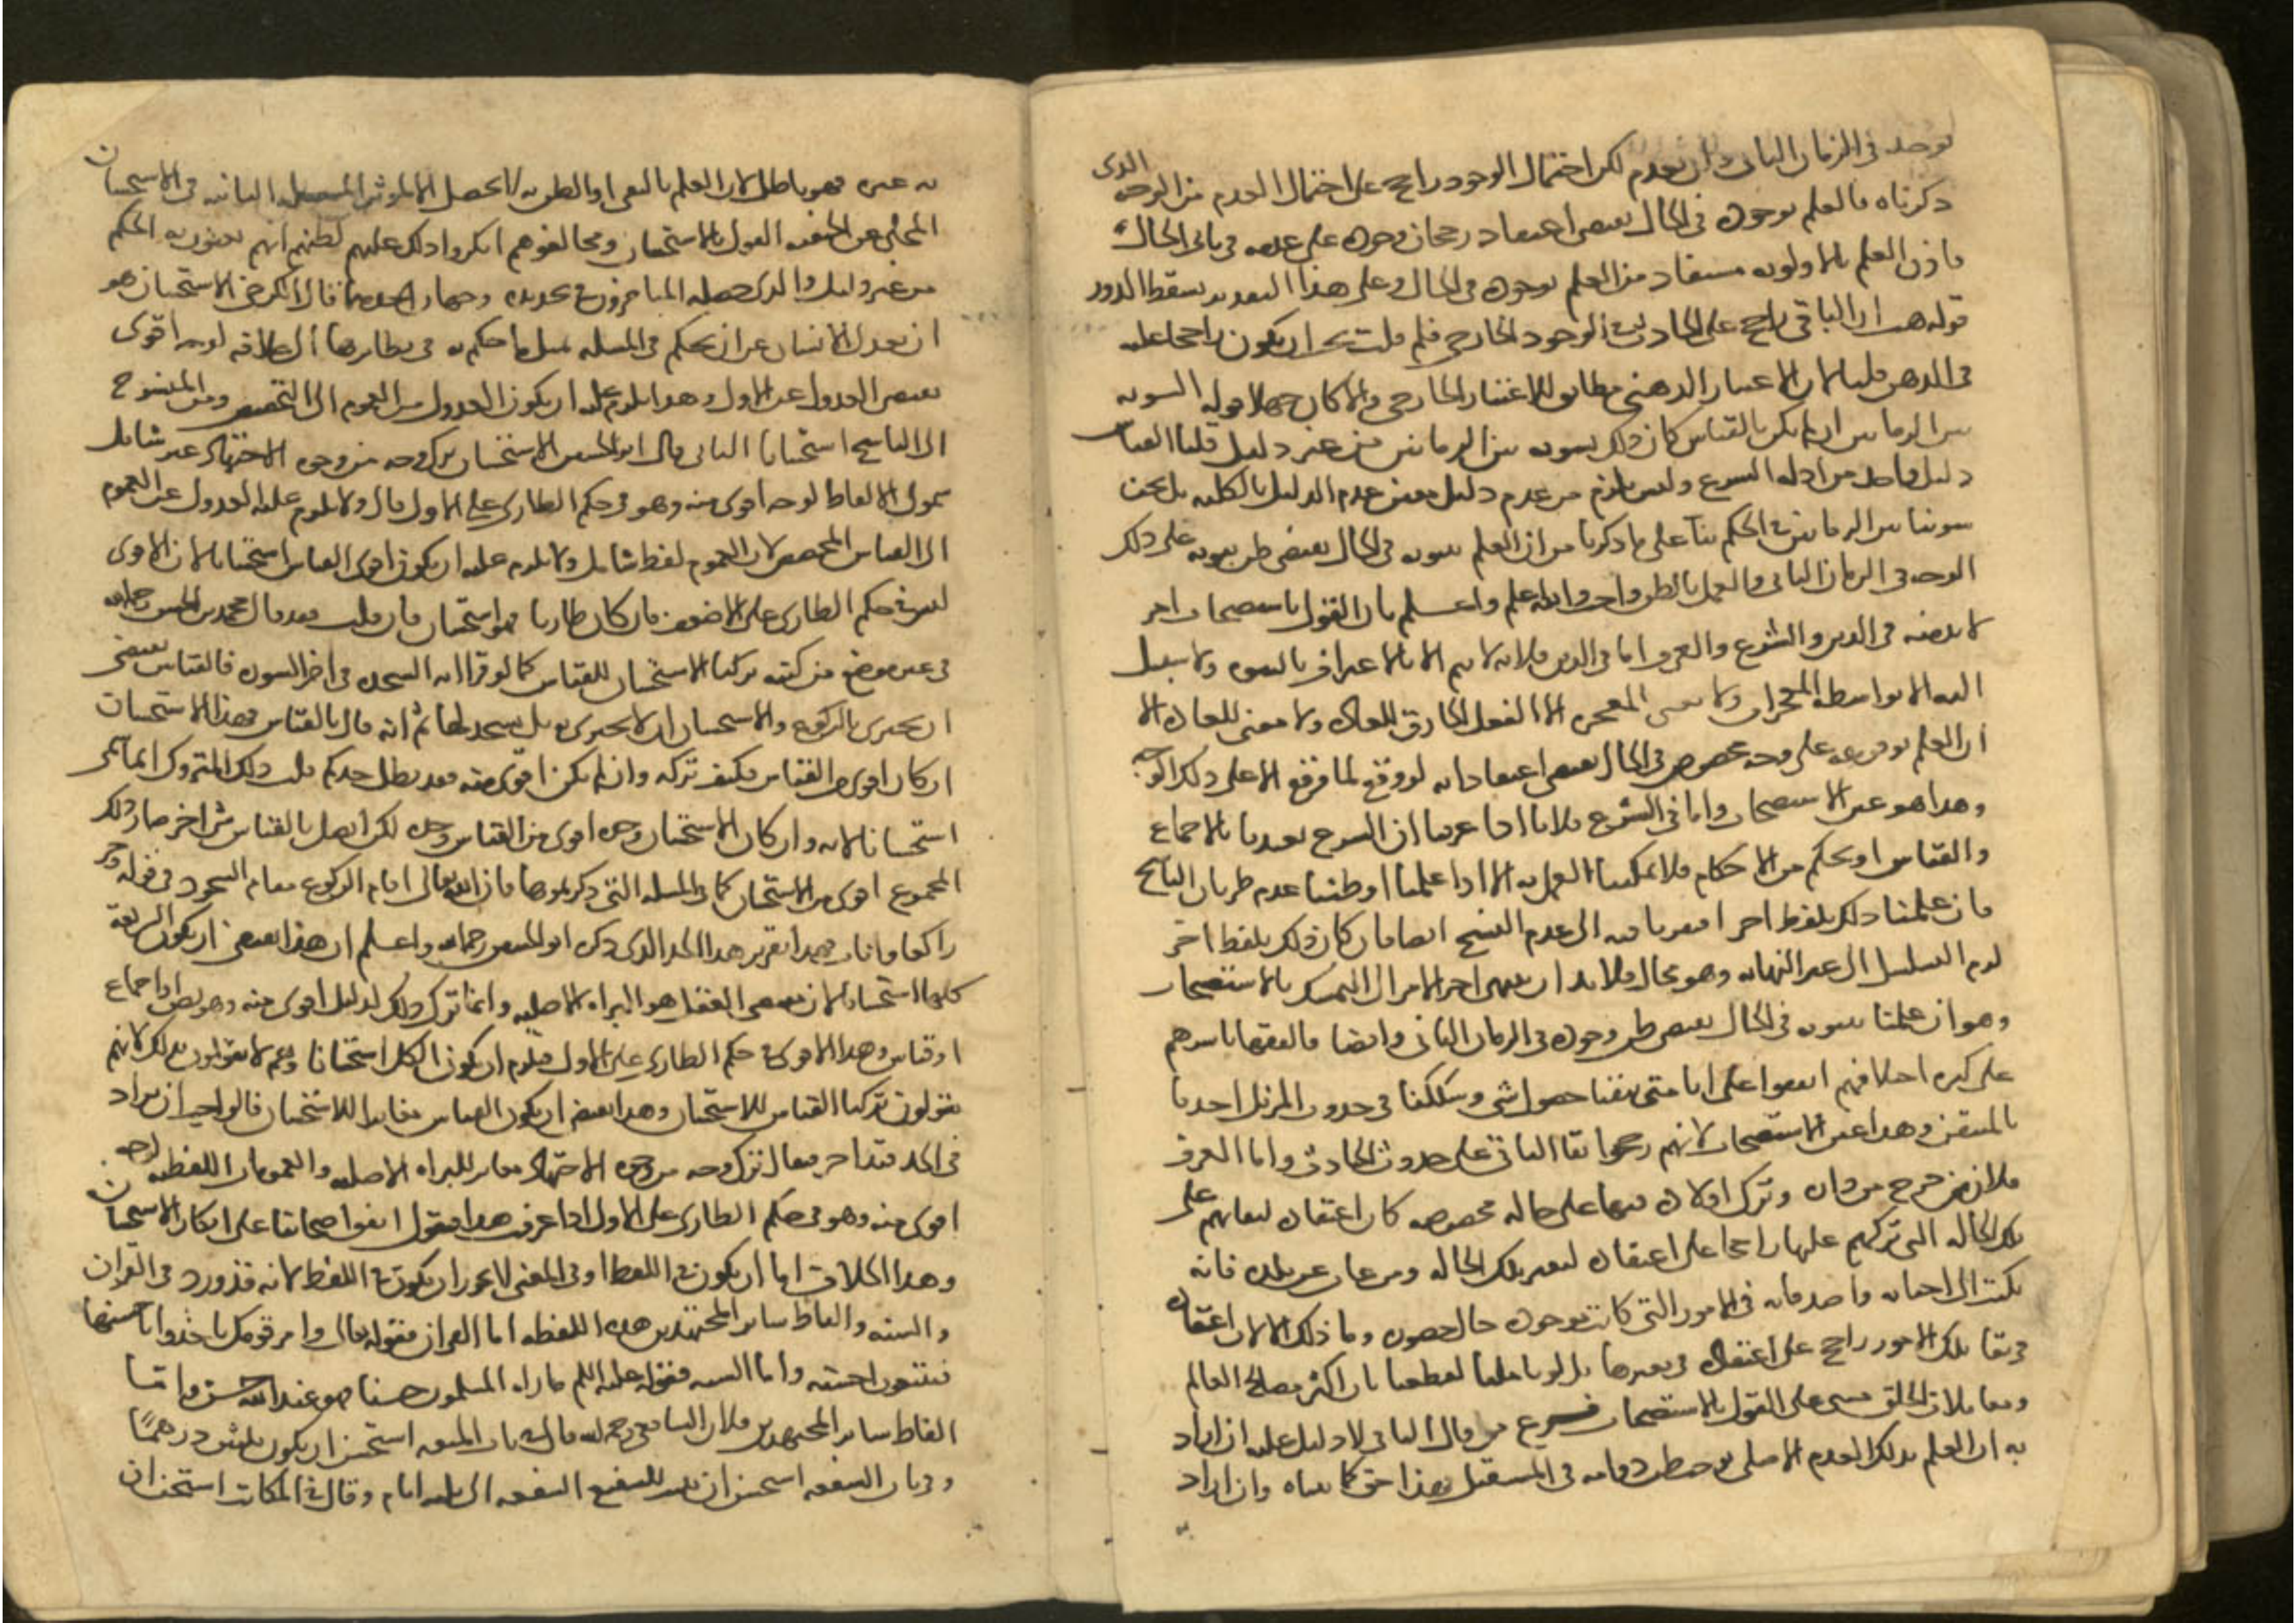 يوجد في الزمان الثاني وان يعدم لكن احتمال الوجود راجح على احتمال العدم من الوجه الذى
ذكرناه فالعلم بوجوده في الحال يقتضى اعتقاد رجحان وجوده على عدمه في ثانى الحال
فاذن العلم بالاولويه مستفاد من العلم بوجوده في الحال وعلى هذا التقدير يسقط الدور
قوله هب ان الباقى راجح على الحادث في الوجود الخارجى فلم قلت يجب ان يكون راجحا عليه
في الذهن قلنا لان الاعتبار الذهنى مطابق للاعتبار الخارجى والا كان جهلا قوله التسويه
بين الزمانين ان لم يكن بالقياس كان ذلك تسويه بين الزمانين من غير دليل قلنا القياس
دليل واحد من ادله الشرع وليس يلزم من عدم دليل معين عدم الدليل بالكليه بل نحن
سوينا بين الزمانين في الحكم بناء على ما ذكرنا من ان العلم بثبوته في الحال يقتضى ظن ثبوته على ذلك
الوجه في الزمان الثانى والعمل بالظن واجب والله اعلم واعلم بان القول باستصحاب امر
لا بد منه في الدين والشرع والعرف اما في الدين فلانه لا يتم الا بالاعتراف بالنبوه ولا سبيل
اليه الا بواسطه المعجزات ولا معنى للمعجزه الا الفعل الخارق للعاده ولا معنى للعاده الا
ان العلم بوقوعه على وجه مخصوص في الحال يقتضى اعتقاد انه لو وقع لما وقع الا على ذلك الوجه
وهذا هو عين الاستصحاب واما في الشرع فلانا اذا عرفنا ان الشرع تعبدنا بالاجماع
والقياس او بحكم من الاحكام فلا يمكننا العمل به الا اذا علمنا او ظننا عدم طريان الناسخ
فان علمنا ذلك بلفظ اخر افتقرنا فيه الى عدم النسخ ايضا فان كان ذلك بلفظ اخر
لزم التسلسل الى غير النهايه وهو محال فلا بد ان ينتهى اخر الامر الى التمسك بالاستصحاب
وهو ان علمنا بثبوته في الحال يقتضى ظن وجوده في الزمان الثانى وايضا فالفقها باسرهم
على كثره اختلافهم اتفقوا على انا متى تيقنا حصول شى وشككنا في حدوث المزيل اخذنا
بالمتيقن وهذا عين الاستصحاب لانهم رجحوا بقا الباقى على حدوث الحادث واما العرف
فلان من خرج من داره وترك اولاده فيها على حاله مخصوصه كان اعتقاده لبقائهم على
تلك الحاله التى تركهم عليها راجحا على اعتقاده لتغير تلك الحاله ومن غاب عن بلده فانه
يكتب الى احبابه واصدقائه في الامور التى كانت موجوده حال حضوره وما ذلك الا لان اعتقاده
في بقا تلك الامور راجح على اعتقاده في تغيرها بل لو تاملنا لقطعنا بان اكثر مصالح العالم
ومعاملات الخلق مبنى على القول بالاستصحاب فرع من قال النافى لا دليل عليه ان اراد
به ان العلم بذلك العدم الاصلى يوجب ظن دوامه في المستقبل فهذا حق كما بيناه وان اراد
به غيره فهو باطل لان العلم بالنفى او الظن به لا يحصل الا بموثر المسئله الثانيه في الاستحسان
المحكى عن الحنفيه القول بالاستحسان ومخالفوهم انكروا ذلك عليهم لظنهم انهم يعنون به الحكم
من غير دليل والذى حصله المتاخرون في تحديده وجهان احدهما قال الكرخى الاستحسان هو
ان يعدل الانسان عن ان يحكم في المسئله بمثل ما حكم به في نظائرها الى خلافه لوجه اقوى
يقتضى العدول عن الاول وهذا يلزم عليه ان يكون العدول من العموم الى التخصيص ومن المنسوخ
الى الناسخ استحسانا الثانى قال ابو الحسين الاستحسان ترك وجه من وجوه الاجتهاد غير شامل
شمول الالفاظ لوجه اقوى منه وهو في حكم الطارى على الاول قال ولا يلزم عليه العدول عن العموم
الى القياس المخصص لان العموم لفظ شامل ولا يلزم عليه ان يكون اقوى القياسين استحسانا لان الاقوى
ليس في حكم الطارى على الاضعف فان كان طاريا فهو استحسان فان قلت فقد قال محمد بن الحسن رحمه الله
في غير موضع من كتبه تركنا الاستحسان للقياس كما لو قرا ايه السجده في اخر السوره فالقياس يقتضى
ان يجتزى بالركوع والاستحسان ان لا يجتزى به بل يسجد لها ثم انه قال بالقياس فهذا الاستحسان
ان كان اقوى من القياس فكيف تركه وان لم يكن اقوى منه فقد بطل حدكم قلت ذلك المتروك انما سمى
استحسانا لانه وان كان الاستحسان وحده اقوى من القياس وحده لكن اتصل بالقياس شى اخر صار ذلك
المجموع اقوى من الاستحسان كما في المسئله التى ذكرتموها فان الله تعالى اقام الركوع مقام السجود في قوله وخر
راكعا واناب فهذا تقرير هذا الحد الذى ذكره ابو الحسين رحمه الله واعلم ان هذا يقتضى ان تكون الشريعه
كلها استحسانا لان مقتضى العقل هو البراه الاصليه وانما ترك ذلك لدليل اقوى منه وهو نص او اجماع
او قياس وهذا الاقوى في حكم الطارى على الاول فيلزم ان يكون الكل استحسانا وهم لا يقولون بذلك لانهم
يقولون تركنا القياس للاستحسان وهذا يقتضى ان يكون القياس مغايرا للاستحسان فالواجب ان يزاد
في الحد قيد اخر فيقال ترك وجه من وجوه الاجتهاد مغاير للبراه الاصليه والعمومات اللفظيه لوجه
اقوى منه وهو في حكم الطارى على الاول اذا عرفت هذا فنقول اتفق اصحابنا على انكار الاستحسان
وهذا الخلاف اما ان يكون في اللفظ او في المعنى لا يجوز ان يكون في اللفظ لانه قد ورد في القران
والسنه والفاظ سائر المجتهدين هذه اللفظه اما القران فقوله تعالى وامر قومك ياخذوا باحسنها
فيتبعون احسنه واما السنه فقوله عليه السلم ما راه المسلمون حسنا فهو عند الله حسن واما
الفاظ سائر المجتهدين فلان الشافعى رحمه الله قال في باب المتعه استحسن ان يكون ثلثين درهما
وفي باب الشفعه استحسن ان يثبت للشفيع الشفعه الى ثلثه ايام وقال في المكاتب استحسن ان